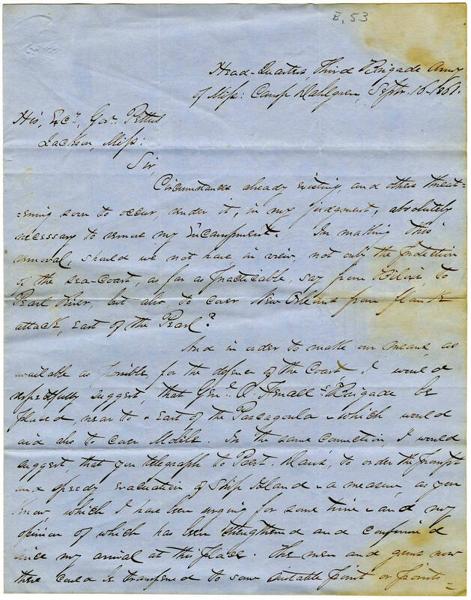 E. 53
Head-Quarters Third Brigade Army
of Miss: Camp Dahlgren, Septr. 10. 1861.
His, Excy. Gov. Pettus
Jackson, Miss:
Sir
Circumstances already existing, and others threat-
ening soon to occur, render it, in my judgement, absolutely
necessary to remove my Encampment. In making this
removal, should we not have in view, not only the protection
of the sea-coast, as far as practicable, say from Biloxi, to
Pearl River, but also to cover New Orleans from flank
attack, East of the Pearl?
And in order to make our means, as
available as possible for the defense of the Coast, I would
respectfully suggest, that Genl. O'Ferrall's Brigade be
placed near to & East of the Pascagoula & which would
aid also to cover Mobile. In the same connection I would
suggest, that you telegraph to Prest. Davis, to order the prompt
and speedy evacuation of Ship Island - a measure, as you
know, which I have been urging for some time - and my
opinion of which has been strengthened and confirmed
since my arrival at this place. The men and guns now
there could be transferred to some suitable point or points